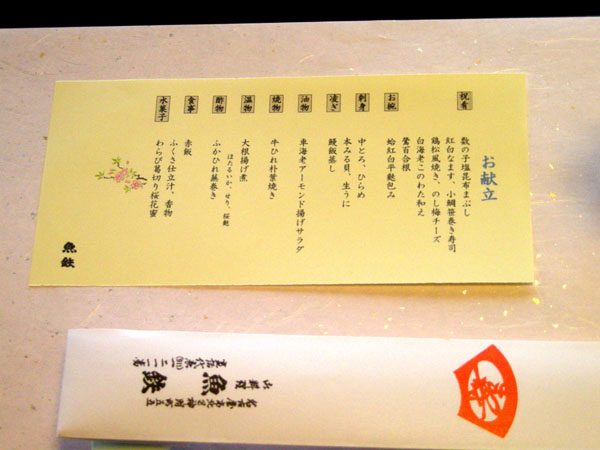 お献立
祝肴
数の子塩昆布まぶし
紅白なます、小鯛笹巻き寿司
鶏松風焼き、のし梅チーズ
白海老このわた和え
鶯百合根
お椀
蛤紅白平麩包み
刺身
中とろ、ひらめ
本みる貝、生うに
凌ぎ
鰻飯蒸し
油物
車海老アーモンド揚げサラダ
焼物
牛ひれ朴葉焼き
温物
大根揚げ煮
ほたるいか、せり、桜麩
酢物
ふかひれ蕪巻き
食事
赤飯
ふくさ仕立汁、香物
水菓子
わらび葛切り桜花蜜
魚鉄
魚鉄